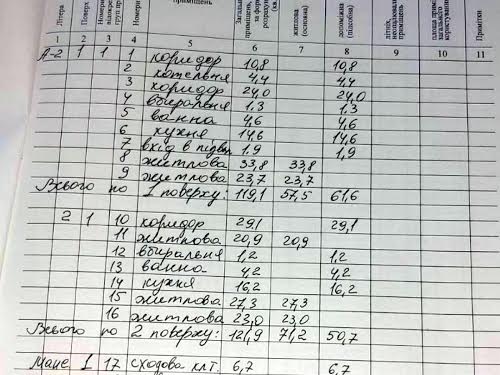 Літера
Поверх
Номери
відокрем
груп пр
Номери
приміщень
Загальн
приміщень,
за форм
розрахун
(кв.
житлова
(основна)
допоміжна
(підсобна)
літніх,
неопалювальних
приміщень
площа примі
загального
користування
Примітки
1 2 3 4 5 6 7 8 9 10 11
А-2 1 1 1 коридор 10,8 10,8
2 котельня 4,4 4,4
3 коридор 24,0 24,0
4 вбиральня 1,3 1,3
5 ванна 4,6 4,6
6 кухня 14,6 14,6
7 вхід в підвал 1,9 1,9
8 житлова 33,8 33,8
9 житлова 23,7 23,7
Всього по 1 поверху: 119,1 57,5 61,6
2 1 10 коридор 29,1 29,1
11 житлова 20,9 20,9
12 вбиральня 1,2 1,2
13 ванна 4,2 4,2
14 кухня 16,2 16,2
15 житлова 27,3 27,3
16 житлова 23,0 23,0
Всього по 2 поверху: 121,9 71,2 50,7
Манс 1 17 сходова кл. 6,7 6,7